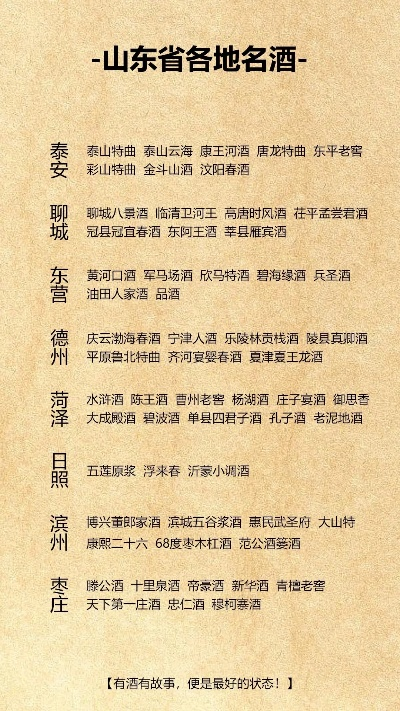 -山东省各地名酒-
泰安
泰山特曲 泰山云海 康王河酒 唐龙特曲 东平老窖
彩山特曲 金斗山酒 汶阳春酒
聊城
聊城八景酒 临清卫河王 高唐时风酒 茌平孟尝君酒
冠县冠宜春酒 东阿王酒 莘县雁宾酒
东营
黄河口酒 军马场酒 欣马特酒 碧海缘酒 兵圣酒
油田人家酒 品酒
德州
庆云渤海春酒 宁津人酒 乐陵林贡栈酒 陵县真卿酒
平原鲁北特曲 齐河宴婴春酒 夏津夏王龙酒
菏泽
水浒酒 陈王酒 曹州老窖 杨湖酒 庄子宴酒 御思香
大成殿酒 碧波酒 单县四君子酒 孔子酒 老泥地酒
日照
五莲原浆 浮来春 沂蒙小调酒
滨州
博兴董郎家酒 滨城五谷浆酒 惠民武圣府 大山特
康熙二十六 68度枣木杠酒 范公酒篓酒
枣庄
滕公酒 十里泉酒 帝豪酒 新华酒 青檀老窖
天下第一庄酒 忠仁酒 穆柯寨酒
【有酒有故事，便是最好的状态！】